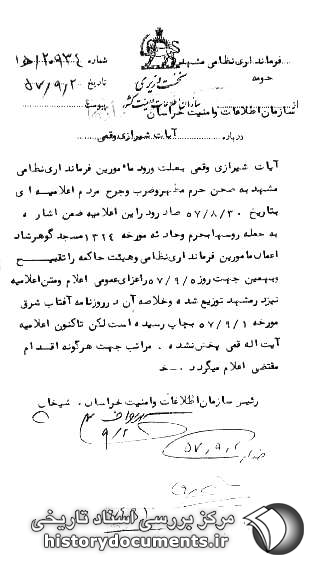 فرمانداری نظامی مشهد و حومه
شماره ۱۵/۲۰۹۳۴
تاریخ ۵۷/۹/۲
نخست وزیری
سازمان اطلاعات و امنیت کشور
پیوست
از سازمان اطلاعات وامنیت خراسان
درباره آیات شیرازی وقمی
آیات شیرازی وقمی بعلت ورود مامورین فرمانداری نظامی
مشهد به صحن حرم مطهر وضرب وجرح مردم اعلامیه ای
بتاریخ ۵۷/۸/۳۰ صادر ودراین اعلامیه ضمن اشاره
به حمله روسها بحرم وحادثه مورخه ۱۳۲۴ مسجد گوهرشاد
اعمال مامورین فرمانداری نظامی وهیئت حاکمه را تقبیح
وبهمین جهت روز ۵۷/۹/۵ راعزای عمومی اعلام ومتن اعلامیه
نیز در مشهد توزیع شده وخلاصه آن در روزنامه آفتاب شرق
مورخه ۵۷/۹/۱ بچاپ رسیده است لکن تاکنون اعلامیه
آیت اله قمی پخش نشده . مراتب جهت هرگونه اقدام
مقتضی اعلام میگردد . خ
رئیس سازمان اطلاعات وامنیت خراسان . شیخان
۹/۲
۵۷،۹،۲
مرکز بررسی اسناد تاریخی
historydocuments.ir